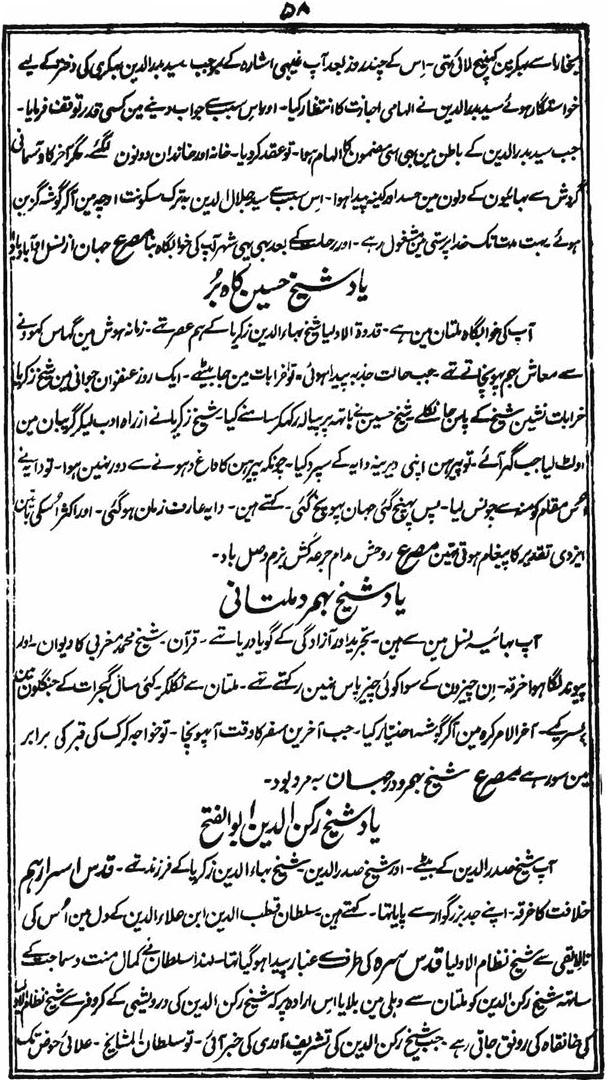 ۵۸
بخارا سے بھکر مین کھینچ لائی تھی۔ اِس کے چند روز بعد آپ غیبی اشارہ کے بموجب سید بدر الدین بھکری کی دختر کے لیے
خواستگار ہوئے سید بدر الدین نے الہامی اجازت کا انتظار کیا۔ اور اس سبب سے جواب دینے مین کسی قدر توقف فرمایا۔
جب سید بدر الدین کے باطن مین بھی اسی مضمون کا الہام ہوا۔ تو عقد کر دیا۔ خانہ اور خاندان دونون لگئے۔ مگر آخر کار آسمانی
گردش سے بھائیون کے دلون مین حسد اور کینہ پیدا ہوا۔ اس سبب سے سید جلال الدین بہ ترک سکونت اوچہ مین آکر گوشہ گزین
ہوئے بہت مدت تک خدا پرستی مین مشغول رہے۔ اور رحلت کے بعد بھی یہی شہر آپ کی خوابگاہ بنا مصرع جہان از نسل او آباد باد
یاد شیخ حسین کاہ بُر
آپ کی خوابگاہ ملتان مین ہے۔ قدوۃ الاولیا شیخ بہاء الدین زکریا کے ہم عصر تھے۔ زمانہ ہوش مین گھاس کھودنے
سے معاش بہم پہونچاتے تھے جب حالت جذبہ پیدا ہوئی۔ تو خرابات مین جا بیٹھے۔ ایک روز عنفوان جوانی مین شیخ زکریا
خرابات نشین شیخ کے پاس جا نکلے شیخ حسین نے ہاتھ پر پیالہ رکھکر سامنے کیا۔ شیخ زکریا نے از راہ ادب لیکر گریبان مین
اولٹ لیا جب گھر آئے۔ تو پیرہن اپنی دیرینہ دایہ کے سپرد کیا۔ چونکہ پیرہن کا داغ دھونے سے دور نہین ہوا۔ تو دایہ نے
اُس مقام کو منہ سے چوس لیا۔ پس پہنچ گئی جہان پہونچ گئی۔ کہتے ہین۔ دایہ عارف زمان ہو گئی۔ اور اکثر اُسکی باتین
ایزدی تقدیر کا پیغام ہوتی تھین مصرع روحش مدام جرعہ کش بزم وصل باد۔
یاد شیخ بہمرد ملتانی
آپ بہائیہ نسل مین سے ہین۔ تجرید اور آزادگی کے گویا دریا تھے۔ قرآن۔ شیخ محمد مغربی کا دیوان۔ اور
پیوند لگا ہوا خرقہ۔ اِن چیزون کے سوا کوئی چیز پاس نہین رکھتے تھے۔ ملتان سے نکلکر کئی سال گجرات کے جنگلون مین
بسر کیے۔ آخر الامر کرہ مین آکر گوشہ اختیار کیا۔ جب آخرین سفر کا وقت آ پہونچا۔ تو خواجہ کرک کی قبر کی برابر
مین سو رہے مصرع شیخ بہمرد در جہان بہ مرد بود۔
یاد شیخ رکن الدین ابو الفتح
آپ شیخ صدر الدین کے بیٹے۔ اور شیخ صدر الدین۔ شیخ بہاء الدین زکریا کے فرزند تھے۔ قدس اسرارہم
خلافت کا خرقہ۔ اپنے جد بزرگوار سے پایا تھا۔ کہتے ہین۔ سلطان قطب الدین ابن علاء الدین کے دل مین اُس کی
نالایقی سے شیخ نظام الاولیا قدس سرہ کی طرف سے غبار پیدا ہو گیا تھا۔ لہذا سلطان نے کمال منت و سماجت کے
ساتھ شیخ رکن الدین کو ملتان سے دہلی مین بلایا اس ارادہ پر کہ شیخ رکن الدین کی درویشی کے کروفر سے شیخ نظام الاولیا
کی خانقاہ کی رونق جاتی رہے۔ جب شیخ رکن الدین کی تشریف آوری کی خبر آئی۔ تو سلطان المشایخ۔ علائی حوض تک